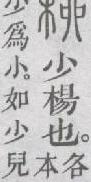 少楊也。各
本
少爲小。如少兒